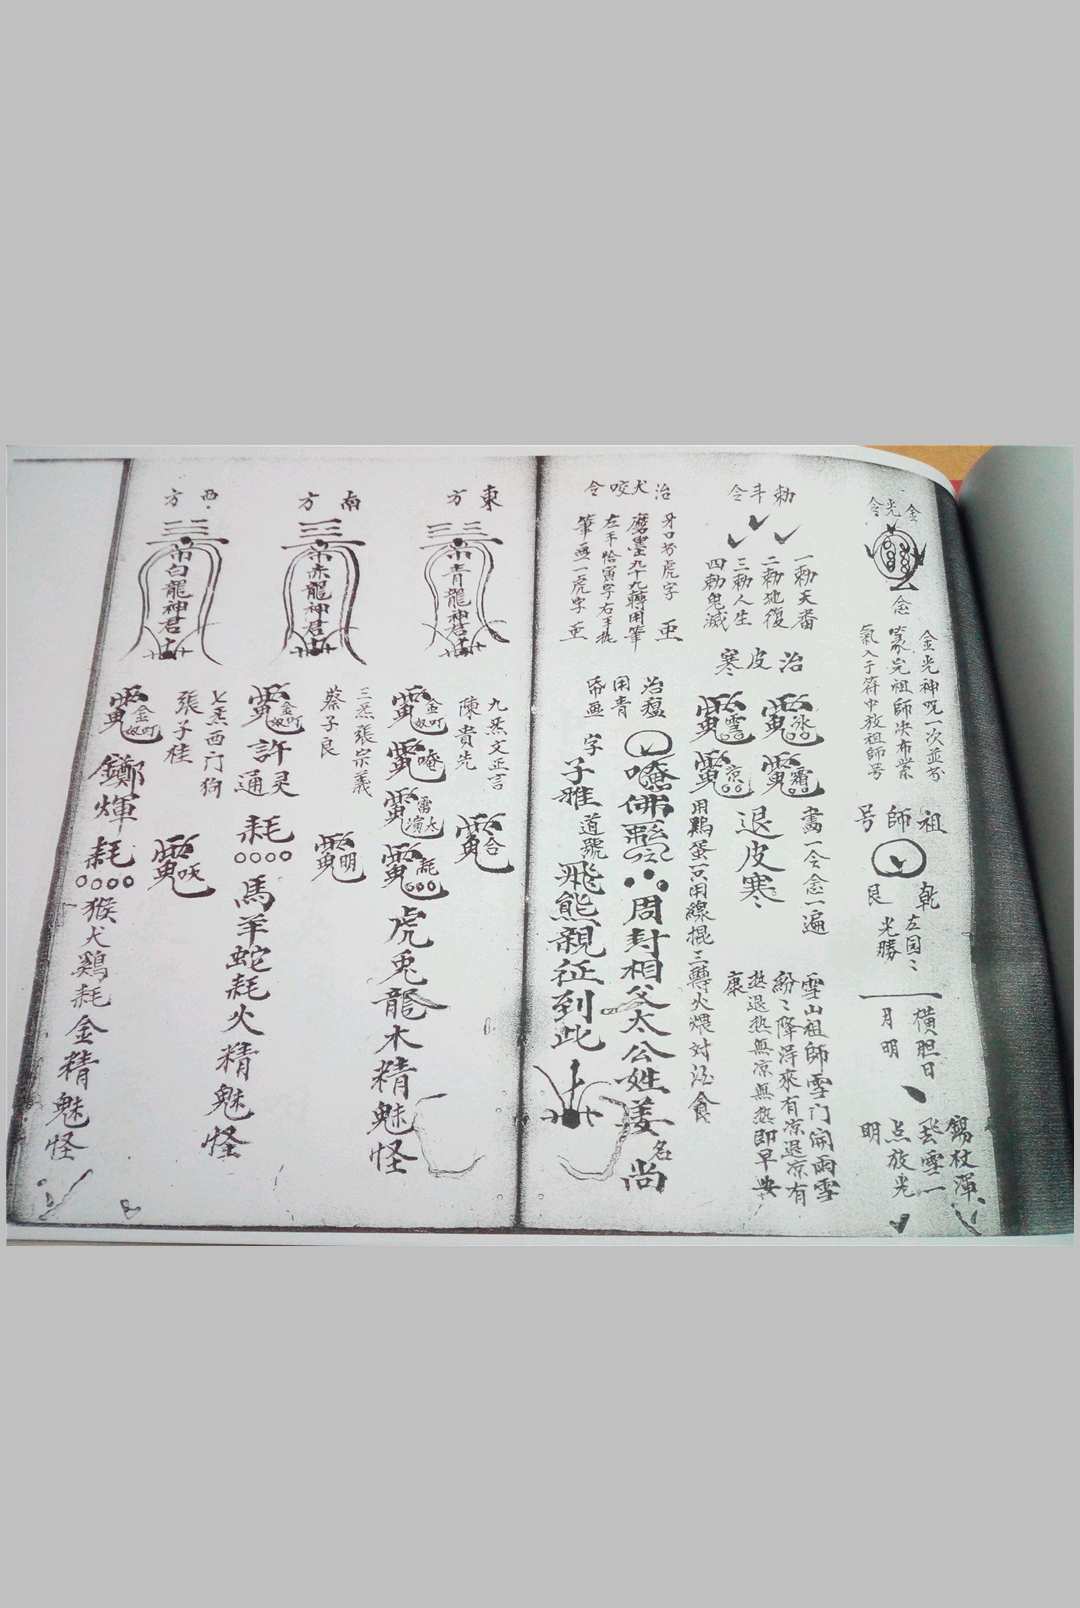 金光令
念
金光神咒一次並
篆完祖師
氣入于符中放祖師号
祖師号
乾
艮
左园〻
光勝
橫胆日
月明
錫杖渾〻
飛雪一
点放光
明
勅斗令
一勅天
二勅地復
三勅人生
四勅鬼滅
治皮寒
冰
霜
雪
京
畵一令念一遍
退皮寒
用鷄蛋一只用線棍三轉火煨对治食
雪山祖師雪门開雨雪
紛〻降得來有凉退凉有
热退热無凉無热即早安
康
治犬咬令
牙口为虎字
磨墨九十九轉用筆
左手恰寅字右手执
筆画一虎字
治瘟
用青
帋画
唵佛
周封相父太公姓姜名尚
字子雅
道號飛熊親征到此
東方
青龍神君
九炁文正言
陳貴先
合
金叮
奴
唵
雷火
演
耗
虎兎龍木精魅怪
南方
赤龍神君
三炁張宗義
蔡子良
明
金叮
奴
許灵通
耗
馬羊蛇耗火精魅怪
西方
白龍神君
七炁西门狗
張子桂
吠
金叮
奴
鄭輝
耗
猴犬鷄耗金精魅怪